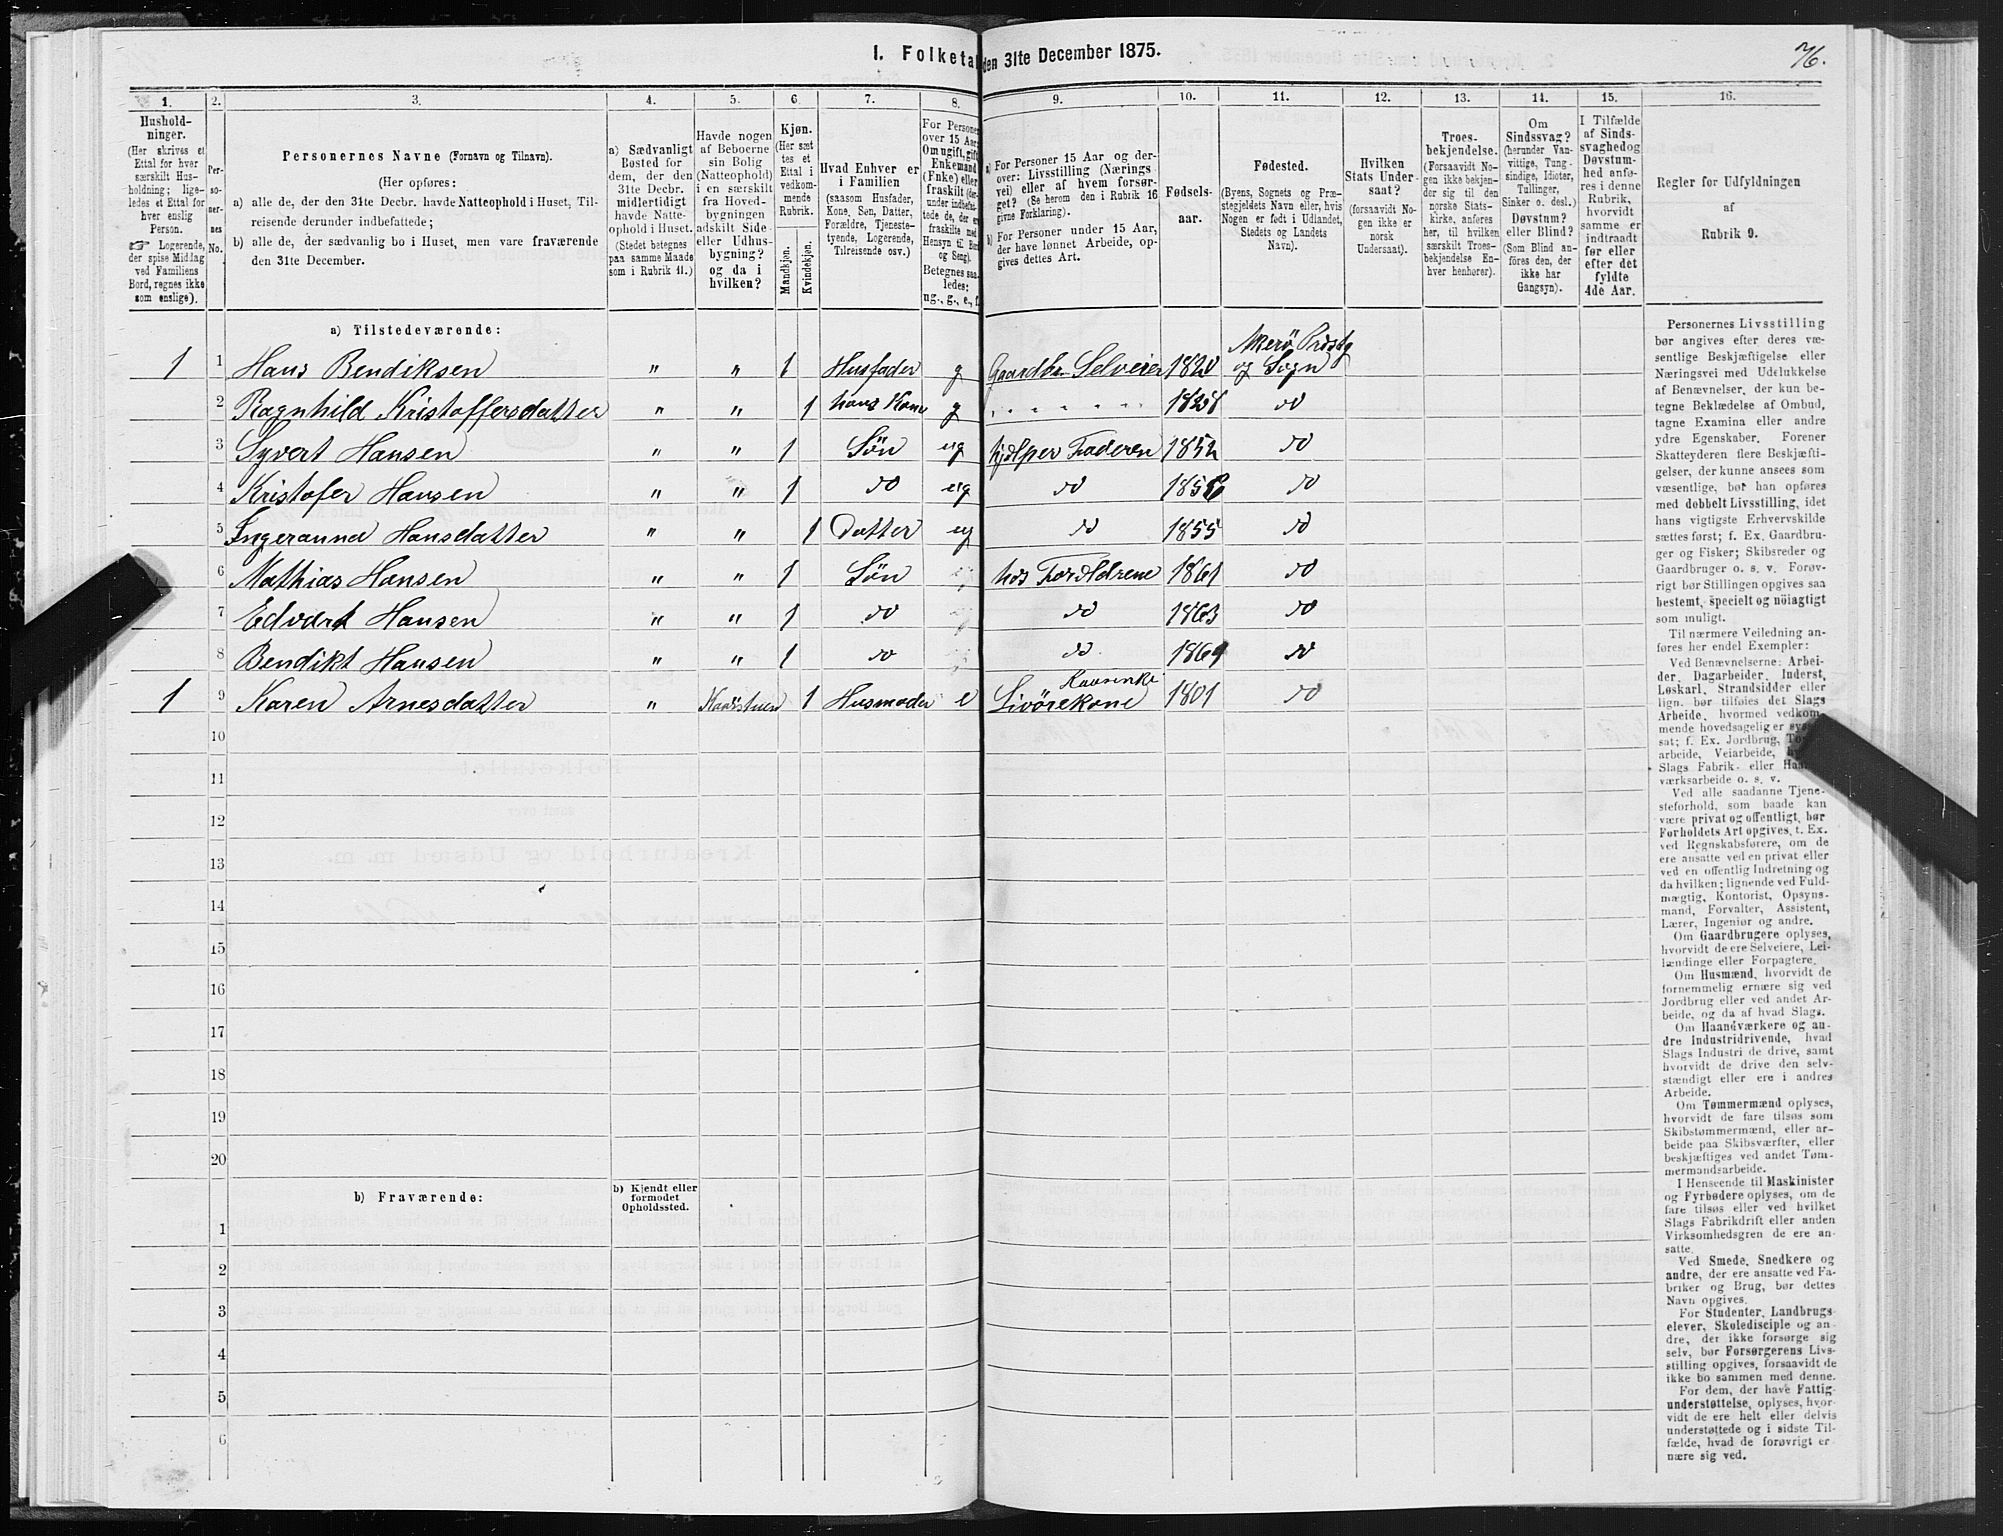 76.
I. Folketal den 31te December 1875.
1. 2. 3. 4. 5. 6. 7. 8. 9. 10. 11. 12. 13. 14. 15. 16.
Hushold-
ninger.
(Her skrives et
Ettal for hver
særskilt Hus-
holdning; lige-
ledes et Ettal for
hver enslig
Person.
☞ Logerende,
der spise Middag
ved Familiens
Bord, regnes ikke
som enslige).
Per-
so-
ner-
nes
No.
Personernes Navne (Fornavn og Tilnavn).
(Her opføres:
a) alle de, der den 31te Decbr. havde Natteophold i Huset, Til-
reisende derunder indbefattede;
b) alle de, der sædvanlig bo i Huset, men vare fraværende
den 31te December.
a) Sædvanligt
Bosted for
dem, der den
31te Decbr.
midlertidigt
havde Natte-
ophold i Huset.
(Stedet betegnes
paa samme Maade
som i Rubrik 11.)
Havde nogen
af Beboerne
sin Bolig
(Natteophold)
i en særskilt
fra Hoved-
bygningen
adskilt Side-
eller Udhus-
bygning?
og da i
hvilken?
Kjøn.
(Her sæt
tes et
Ettal i
vedkom-
mende
Rubrik.
Mandkjøn.
Kvindekjøn.
Hvad Enhver er
i Familien
(saasom Husfader,
Kone, Søn, Datter,
Forældre, Tjeneste-
tyende, Logerende,
Tilreisende osv.)
For Personer
over 15 Aar
Om ugift, gift
Enkemand
(Enke) eller
fraskilt
Betegnes saa-
ledes:
ug., g., e., f.
a) For Personer 15 Aar og der-
over: Livsstilling (Nærings-
vei) eller af hvem forsør-
get? (Se herom den i Rubrik 16
givne Forklaring).
b) For Personer under 15 Aar,
der have lønnet Arbeide, op-
gives dettes Art.
Fødsels-
aar.
Fødested.
(Byens, Sognets og Præ-
stegjeldets Navn eller, hvis
Nogen er født i Udlandet,
Stedets og Landets
Navn).
Hvilken
Stats Under-
saat?
(forsaavidt No-
gen ikke er
norsk
Undersaat).
Troes-
bekjendelse.
(Forsaavidt No-
gen ikke bekjen-
der sig til den
norske Stats-
kirke, anføres
her, til hvilken
særskilt Troes-
bekjendelse En-
hver henhører).
Om
Sindssvag?
(herunder Van-
vittige, Tung-
sindige, Idioter,
Tullinger,
Sinker o. desl.)
Døvstum?
eller Blind?
(Som Blind an-
føres den, der
ikke har
Gangsyn).
I Tilfælde
af Sinds-
svaghed og
Døvstum-
hed anfø-
res i denne
Rubrik,
hvorvidt
samme er
indtraadt
før eller
efter det
fyldte
4de Aar.
Regler for Udfyldningen
af
Rubrik 9.
a) Tilstedeværende:
1 1 Hans Bendiksen " " 1 Husfader g Gaardbr. Selveier 1820 Akerö Præstg og Sogn
2 Ragnhild Kristoffersdatter " " 1 hans Kone g " " " " " " do
3 Syvert Hansen " " 1 Søn ug hjelper Faderen 1852 do
4 Kristofer Hansen " " 1 do ug do do
5 Ingeranna Hansdatter " " 1 Datter ug do 1855 do
6 Mathias Hansen " " 1 Søn hos Forældrene 1861 do
7 Edvart Hansen " " 1 do do 1863 do
8 Bendikt Hansen " " 1 do do do
1 9 Karen Arnesdatter " Kaarstuen 1 Husmoder e Livörekone 1801 do
10
11
12
13
14
15
16
17
18
19
20
b) Fraværende:
b) Kjendt eller
formodet
Opholdssted.
1
2
3
4
5
6
Personernes Livsstilling
bør angives efter deres væ-
sentlige Beskjæftigelse eller
Næringsvei med Udelukkelse
af Benævnelser, der kun be-
tegne Beklædelse af Ombud,
tagne Examina eller andre
ydre Egenskaber. Forener
Skatteyderen flere Beskjæfti-
gelser, der kunne ansees som
væsentlige, bør han opføres
med dobbelt Livsstilling, idet
hans vigtigste Erhvervskilde
sættes først; f. Ex. Gaardbru-
ger og Fisker; Skibsreder og
Gaardbruger o. s. v. Forøv-
rigt bør Stillingen opgives saa
bestemt, specielt og nöiagtigt
som muligt.
Til nærmere Veiledning an-
føres her endel Exempler:
Ved Benævnelserne: Arbei-
der, Dagarbeider, Inderst,
Løskarl, Strandsidder eller
lign. bør tilføies det Slags
Arbeide, hvormed vedkom-
mende hovedsagelig er syssel-
sat; f. Ex. Jordbrug,
arbeide, Veiarbeide,
Slags Fabrik- eller
værksarbeide o. s. v.
Ved alle saadanne Tjene-
steforhold, som baade kan
være privat og offentligt, bør
Forholdets Art opgives, t. Ex.
ved Regnskabsførere, om de
ere ansatte ved en privat eller
ved en offentlig Indretning og
da hvilken; lignende ved Fuld-
mægtig, Kontorist, Opsyns-
mand, Forvalter, Assistent,
Lærer, Ingeniør og andre.
Om Gaardbrugere oplyses,
hvorvidt de ere Selveiere, Lei-
lændinge eller Forpagtere.
Om Husmænd, hvorvidt de
fornemmelig ernære sig ved
Jordbrug eller ved andet Ar-
beide, og da af hvad Slags.
Om Haandværkere og an-
dre Industridrivende, hvad
Slags Industri de drive, samt
hvorvidt de drive den selv-
stændigt eller ere i andres
Arbeide.
Om Tømmermænd oplyses,
hvorvidt de fare tilsøs som
Skibstømmermænd, eller ar-
beide paa Skibsværfter, eller
beskjæftiges ved andet Tøm-
mermandsarbeide.
I Henseende til Maskinister
og Fyrbødere oplyses, om de
fare tilsøs eller ved hvilket
Slags Fabrikdrift eller anden
Virksomhedsgren de ere an-
satte.
Ved Smede, Snedkere og
andre, der ere ansatte ved Fa-
briker og Brug, bør dettes
Navn opgives.
For Studenter, Landbrugs-
elever, Skoledisciple og an-
dre, der ikke forsørge sig
selv, bør Forsørgerens Livs-
stilling opgives, forsaavidt de
ikke bo sammen med denne.
For dem, der have Fattig-
understøttelse, oplyses, hvor-
vidt de ere helt eller delvis
understøttede og i sidste Til-
fælde, hvad de forøvrigt er
nære sig ved.